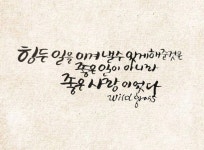 힘든 일을 이겨 낼수 있게 해준것은
좋은 일이 아니라
좋은 사람 이었다
wild grass